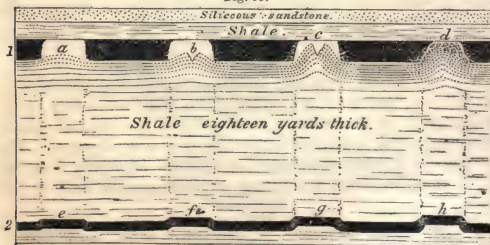 Siliceous sandstone.
Shale.
1 a b c d
Shale eighteen yards thick.
e f g h
2